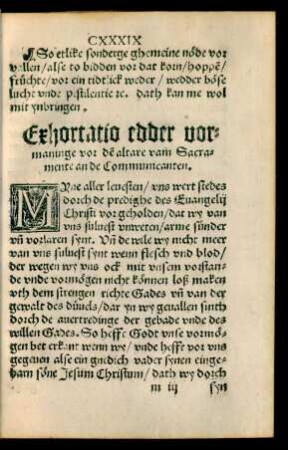 CXXXIX
So etlike sonderge ghemeine nöde vor
vallen / alse to bidden vor dat korn / hoppē /
früchte / vor ein tidtlick weder / wedder böse
lucht vnde pestilentie ꝛc. dath kan me wol
mit ynbringen.
Exhortatio edder vor-
maninge vor dē altare vam Sacra-
mente an de Communicanten.
MYne aller leuesten / vns wert stedes
dorch de predighe des Euangelij
Christi vor geholden / dat wy van
vns suluest vnreten / arme sünder
vñ vorlaren synt. Vñ de wile wy nicht meer
van vns suluest synt wenn flesch vnd blod /
der wegen wy vns ock mit vnsem vorstan-
de vnde vormögen nicht können loß maken
vth dem strengen richte Gades vñ van der
gewalt des düuels / dar yn wy geuallen sinth
dorch de auertredinge der gebade vnde des
willen Gades. So hefft Godt vnse vormö-
gen bet erkant wenn wy / vnde hefft vor vns
gegeuen alse ein gnedich vader synen einge-
barn söne Jesum Christum / dath wy dorch
m iij syn